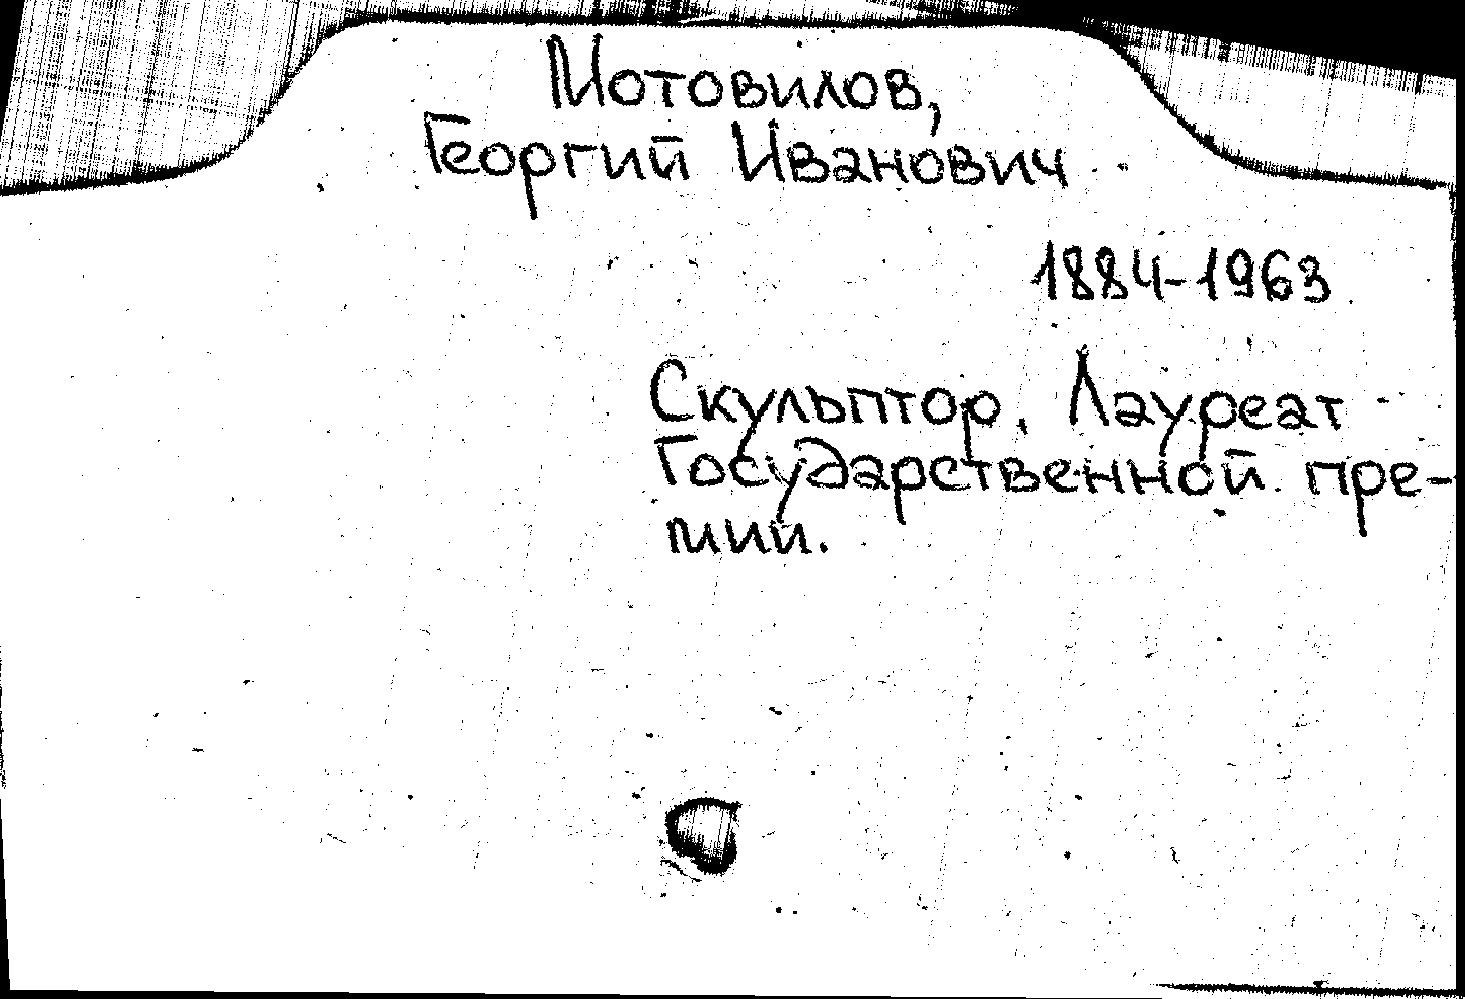 Мотовилов,
Георгий Иванович
1884-1963
Скульптор. Лауреат
Государственной пре-
мии.